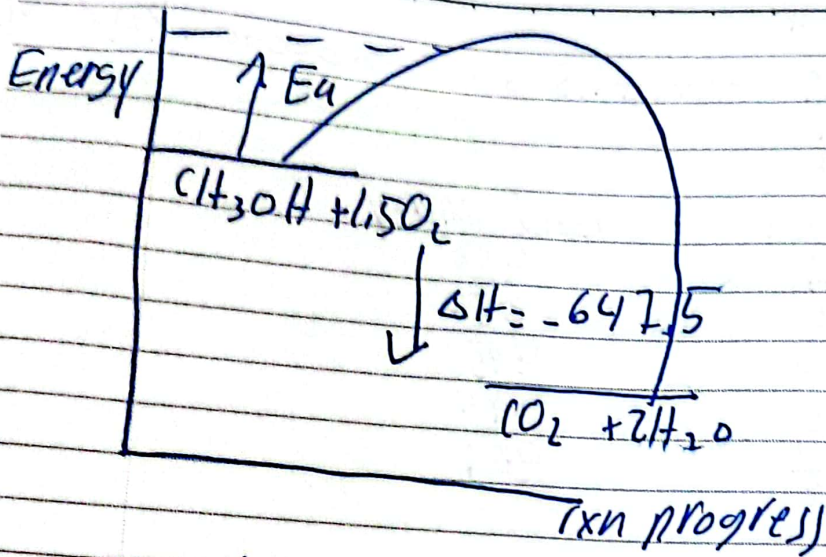 Energy
Ea
CH₃OH + 1,5O₂
ΔH = - 647,5
CO₂ + 2H₂O
rxn progress